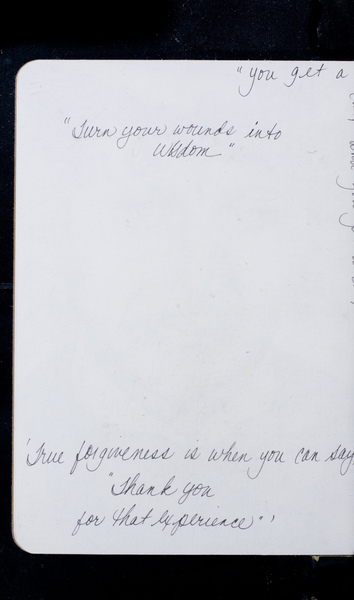 "you get a
"Turn your wounds into
wisdom"
'True forgiveness is when you can say
"Thank you
for that experience"'